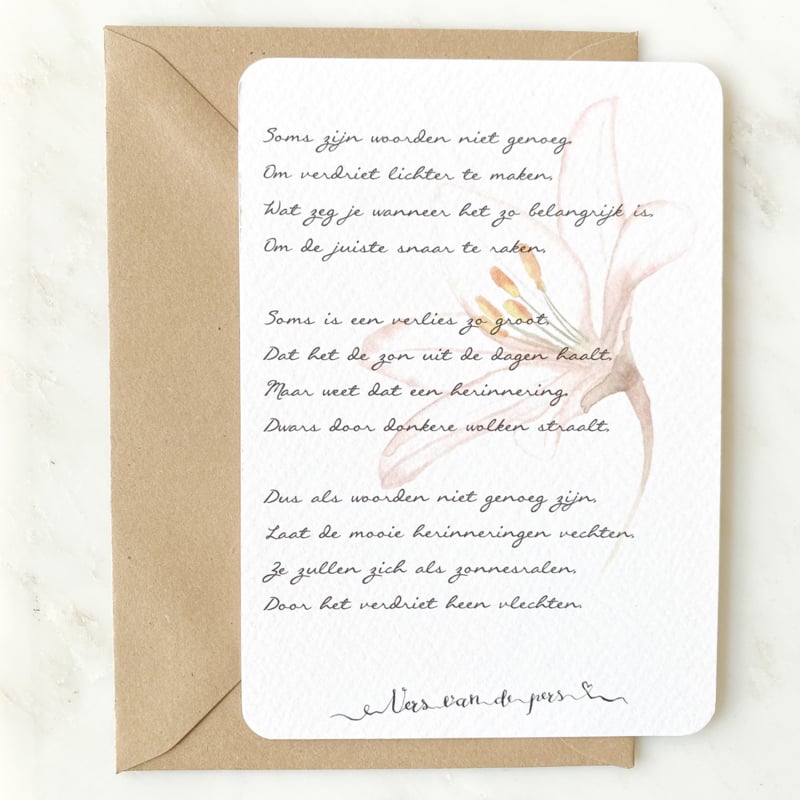 Soms zijn woorden niet genoeg,
Om verdriet lichter te maken,
Wat zeg je wanneer het zo belangrijk is,
Om de juiste snaar te raken,
Soms is een verlies zo groot,
Dat het de zon uit de dagen haalt,
Maar weet dat een herinnering,
Dwars door donkere wolken straalt,
Dus als woorden niet genoeg zijn,
Laat de mooie herinneringen vechten,
Ze zullen zich als zonnesralen,
Door het verdriet heen vlechten,
Vers van de pers